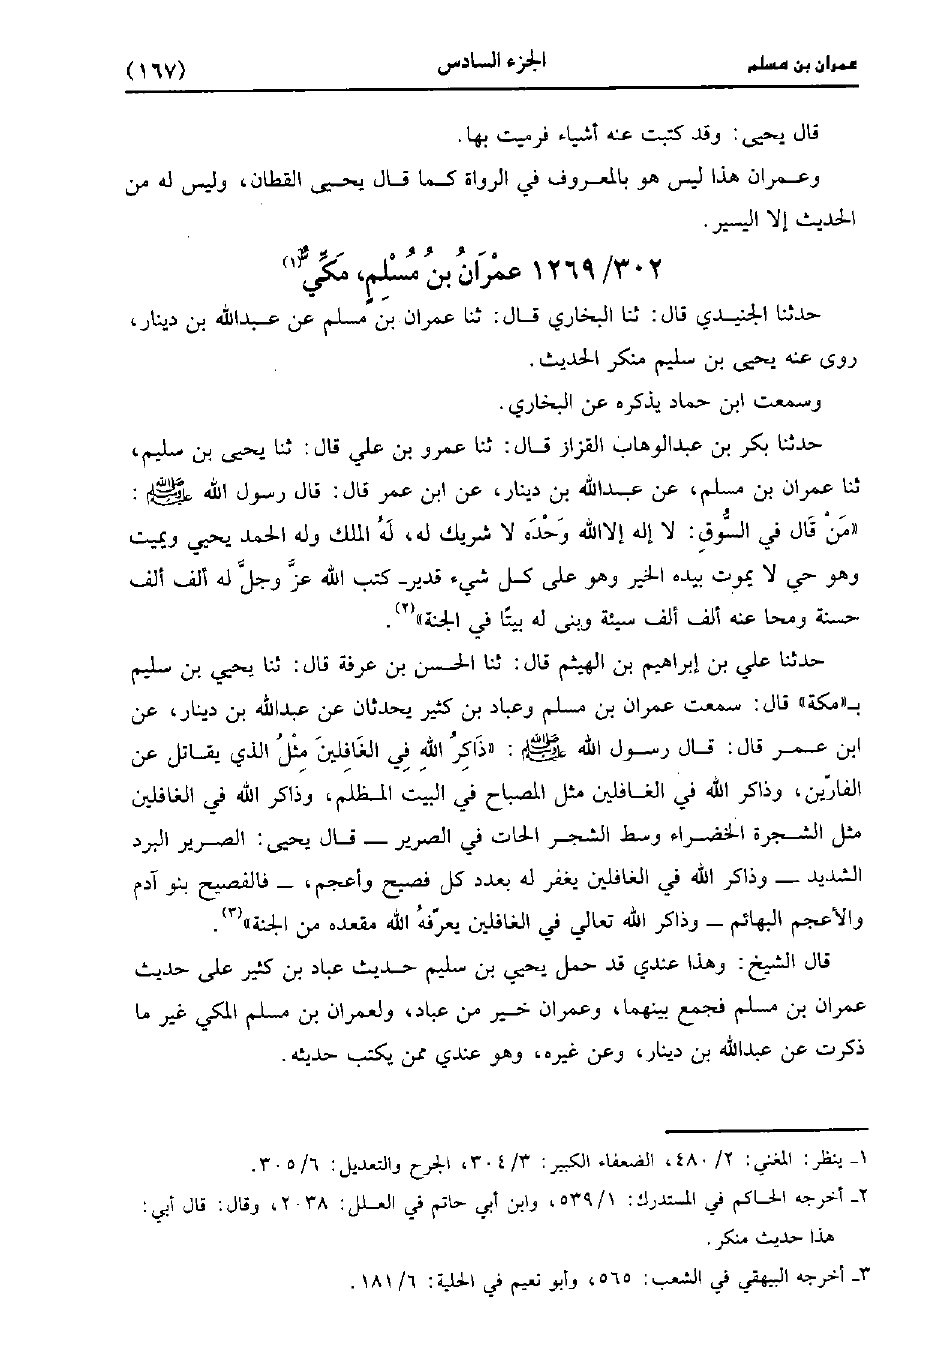 عمران بن مسلم الجزء السادس (١٦٧)
قال يحيى: وقد كتبت عنه أشياء فرميت بها.
وعمران هذا ليس هو بالمعروف في الرواة كما قال يحيى القطان، وليس له من
الحديث إلا اليسير.
١٢٦٩/٣٠٢ عِمْرَانُ بنُ مُسْلِمٍ، مَكِّيٌّ(١)
حدثنا الجنيدي قال: ثنا البخاري قال: ثنا عمران بن مسلم عن عبدالله بن دينار،
روى عنه يحيى بن سليم منكر الحديث.
وسمعت ابن حماد يذكره عن البخاري.
حدثنا بكر بن عبدالوهاب القزاز قال: ثنا عمرو بن علي قال: ثنا يحيى بن سليم،
ثنا عمران بن مسلم، عن عبدالله بن دينار، عن ابن عمر قال: قال رسول الله ﷺ :
«مَنْ قَال في السُّوقِ: لا إله إلاالله وَحْدَه لا شريك له، لَهُ الملك وله الحمد يحيي ويميت
وهو حي لا يموت بيده الخير وهو على كل شيء قدير- كتب الله عزَّ وجلَّ له ألف ألف
حسنة ومحا عنه ألف ألف سيئة وبنى له بيتًا في الجنة»(٢).
حدثنا علي بن إبراهيم بن الهيثم قال: ثنا الحسن بن عرفة قال: ثنا يحيى بن سليم
بـ«مكة» قال: سمعت عمران بن مسلم وعباد بن كثير يحدثان عن عبدالله بن دينار، عن
ابن عمر قال: قال رسول الله ﷺ : «ذَاكِرُ اللهِ فِي الغَافِلِينَ مِثْلُ الذي يقاتل عن
الفارّين، وذاكر الله في الغافلين مثل المصباح في البيت المظلم، وذاكر الله في الغافلين
مثل الشجرة الخضراء وسط الشجر الحات في الصرير ــ قال يحيى: الصرير البرد
الشديد ــ وذاكر الله في الغافلين يغفر له بعدد كل فصيح وأعجم، ــ فالفصيح بنو آدم
والأعجم البهائم ــ وذاكر الله تعالي في الغافلين يعرّفهُ الله مقعده من الجنة»(٣).
قال الشيخ: وهذا عندي قد حمل يحيى بن سليم حديث عباد بن كثير على حديث
عمران بن مسلم فجمع بينهما، وعمران خير من عباد، ولعمران بن مسلم المكي غير ما
ذكرت عن عبدالله بن دينار، وعن غيره، وهو عندي ممن يكتب حديثه.
١ـ ينظر: المغني: ٢/ ٤٨٠، الضعفاء الكبير: ٣/ ٣٠٤، الجرح والتعديل: ٦/ ٣٠٥.
٢ـ أخرجه الحاكم في المستدرك: ١/ ٥٣٩، وابن أبي حاتم في العلل: ٢٠٣٨، وقال: قال أبي:
هذا حديث منكر.
٣ـ أخرجه البيهقي في الشعب: ٥٦٥، وأبو نعيم في الحلية: ٦/ ١٨١.